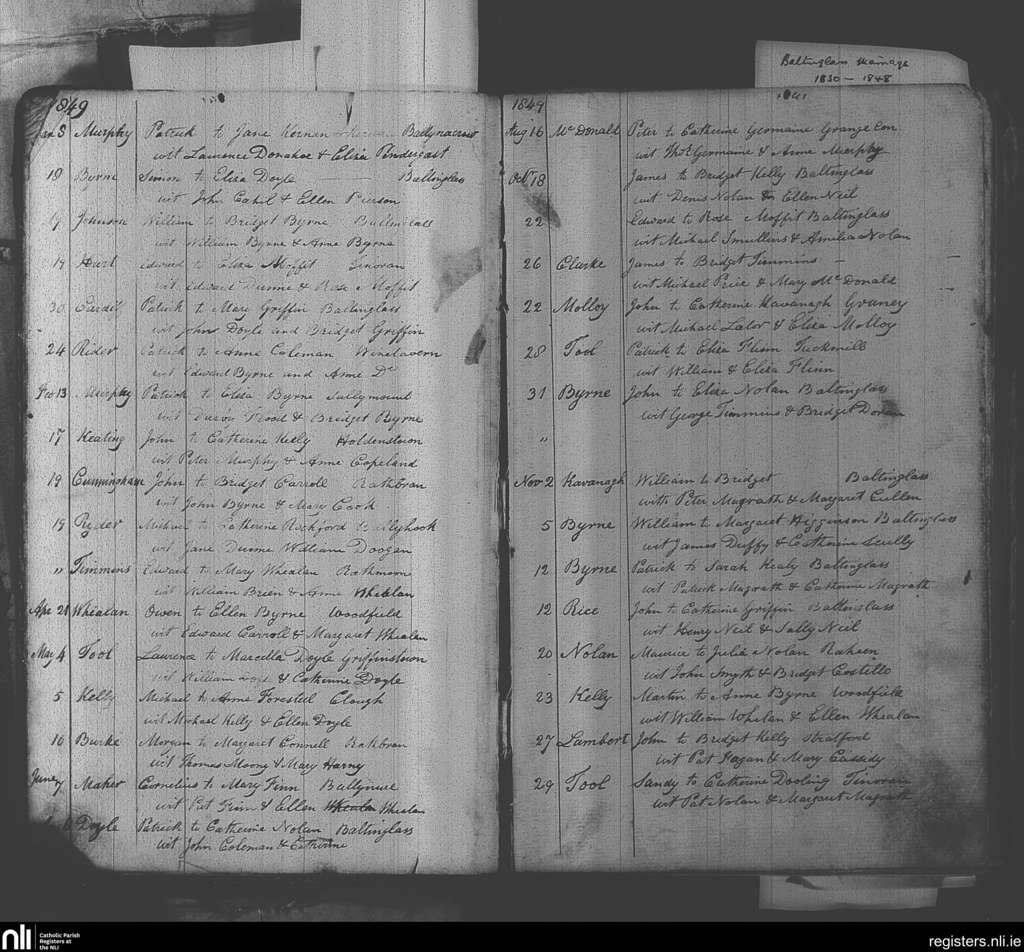 Baltinglass Marriage
1830 — 1848
1849
Jan 8 Murphy Patrick to Jane Kernan Ballynacrow
wit Laurence Donahoe & Eliza Pendergast
18 Byrne Simon to Eliza Doyle Baltinglas
wit John Cahil & Ellen Pierson
19 Johnson William to Bridget Byrne Baltinglass
wit William Byrne & Anne Byrne
19 Hart Edward to Eliza Moffit Tinoran
wit Edward Dunne & Rose Moffit
30 Cardif Patrick to Mary Griffin Baltinglass
wit John Doyle and Bridget Griffin
24 Rider Patrick to Anne Coleman Winetavern
wit Edward Byrne and Anne Do
Feb 13 Murphy Patrick to Eliza Byrne Sallymount
wit Flood & Bridget Byrne
17 Keating John to Catherine Kelly Holdenstown
wit Peter Murphy & Anne Copeland
19 Cunningham John to Bridget Carroll Rathbran
wit John Byrne & Mary Cook
19 Ryder Michael to Catherine Rochford Ballyhook
wit Jane Dunne William Doogan
" Timmins Edward to Mary Whealan Rathmoon
wit William Brien & Anne Whealan
Apr 21 Whealan Owen to Ellen Byrne Woodfield
wit Edward Carroll & Margaret Whealan
May 4 Tool Laurence to Marcella Doyle Griffinstown
wit William & Catherine Doyle
5 Kelly Michael to Anne Forestel Clough
wit Michael Kelly & Ellen Doyle
16 Burke Morgan to Margaret Connell Rathbran
wit Thomas Moony & Mary Harny
June 7 Maher Cornelius to Mary Finn Ballynure
wit Pat Finn & Ellen Whealan Whealan
Doyle Patrick to Catherine Nolan Baltinglass
wit John Coleman & Catherine
1849
Aug 16 McDonald Peter to Catherine Germaine Grange Con
wit Thos Germaine & Anne Murphy
Octr 18 James to Bridget Kelly Baltinglass
wit Denis Nolan & Ellen Neil
22 Edward to Rose Moffit Baltinglass
wit Michael Smullins & Amilia Nolan
26 Clarke James to Bridget Timmins —
wit Michael Price & Mary McDonald
22 Molloy John to Catherine Kavanagh Graney
wit Michael Lalor & Eliza Molloy
28 Tool Patrick to Eliza Flinn Tuckmill
wit William & Eliza Flinn
31 Byrne John to Eliza Nolan Baltinglass
wit George Timmins & Bridget Doran
"
Nov 2 Kavanagh William to Bridget Baltinglass
with Peter Magrath & Margaret Cullen
5 Byrne William to Margaret Higginson Baltinglass
wit James Duffy & Catherine Scully
12 Byrne Patrick to Sarah Healy Baltinglass
wit Patrick Magrath & Catherine Magrath
12 Rice John to Catherine Griffin Baltinglass
wit Henry Neil & Sally Neil
20 Nolan Maurice to Julia Nolan Raheen
wit John Smyth & Bridget Costillo
23 Kelly Martin to Anne Byrne Woodfield
wit William Whelan & Ellen Whealan
27 Lambert John to Bridget Kelly Stratford
wit Pat Fagan & Mary Cassidy
29 Tool Sandy to Catherine Dooling Tinoran
wit Pat Nolan & Margaret Magrath
nli
Catholic Parish
Registers at
the NLI
registers.nli.ie